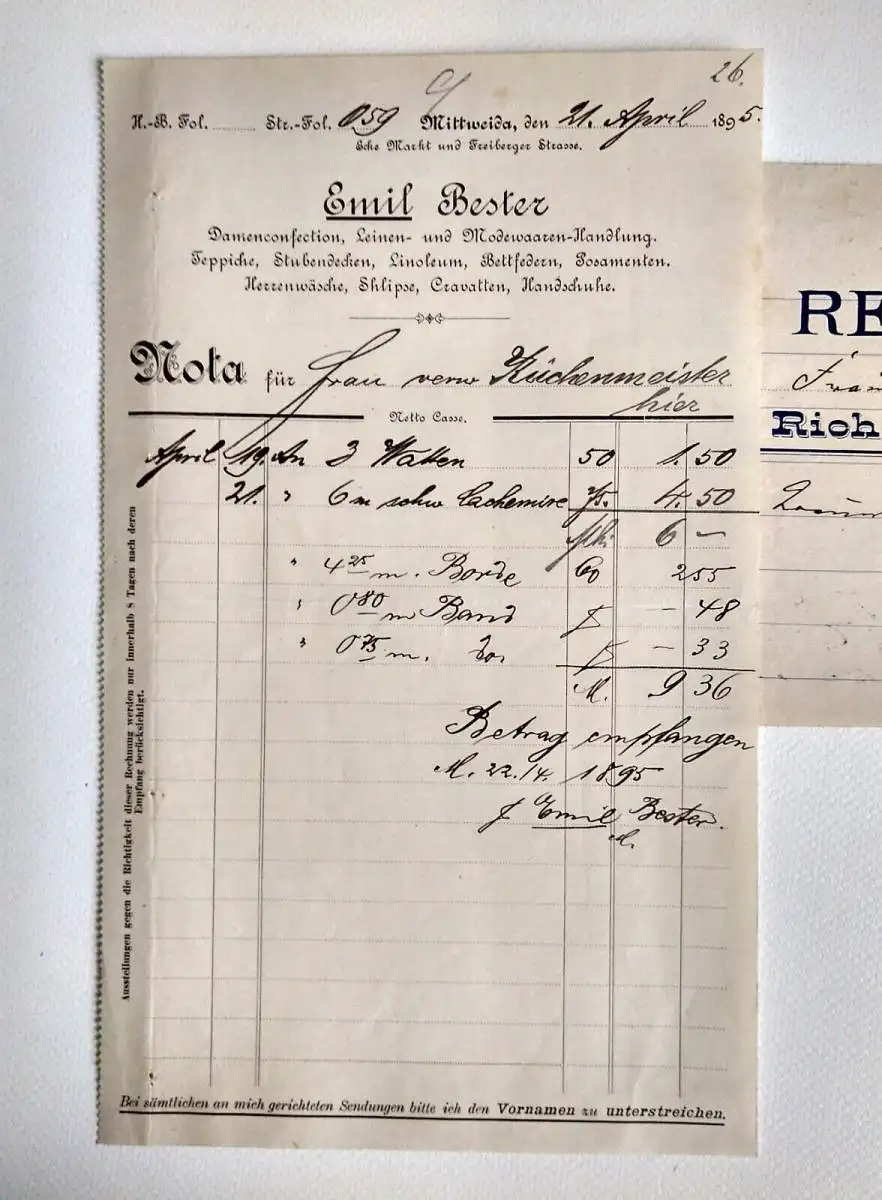 26.
H.-B. Fol. Str.-Fol. 059 Mittweida, den 21. April 1895.
Ecke Markt und Freiberger Strasse.
Emil Bester
Damenconfection, Leinen- und Modewaaren-Handlung.
Teppiche, Stubendecken, Linoleum, Bettfedern, Posamenten.
Herrenwäsche, Shlipse, Cravatten, Handschuhe.
Nota für Frau verw Küchenmeister
hier
Netto Casse.
April 19. An 3 Watten 50 1. 50
21. " 6 m schw Cachemire 75. 4. 50
Mk. 6 –
" 4 25 m. Borde 60 2 55
" 0 80 m Band – 48
" 0 75 m. – 33
M. 9 36
Betrag empfangen
M. 22./4. 1895
Emil Bester.
Ausstellungen gegen die Richtigkeit dieser Rechnung werden nur innerhalb 8 Tagen nach deren
Empfang berücksichtigt.
Bei sämtlichen an mich gerichteten Sendungen bitte ich den Vornamen zu unterstreichen.
RE
Rich